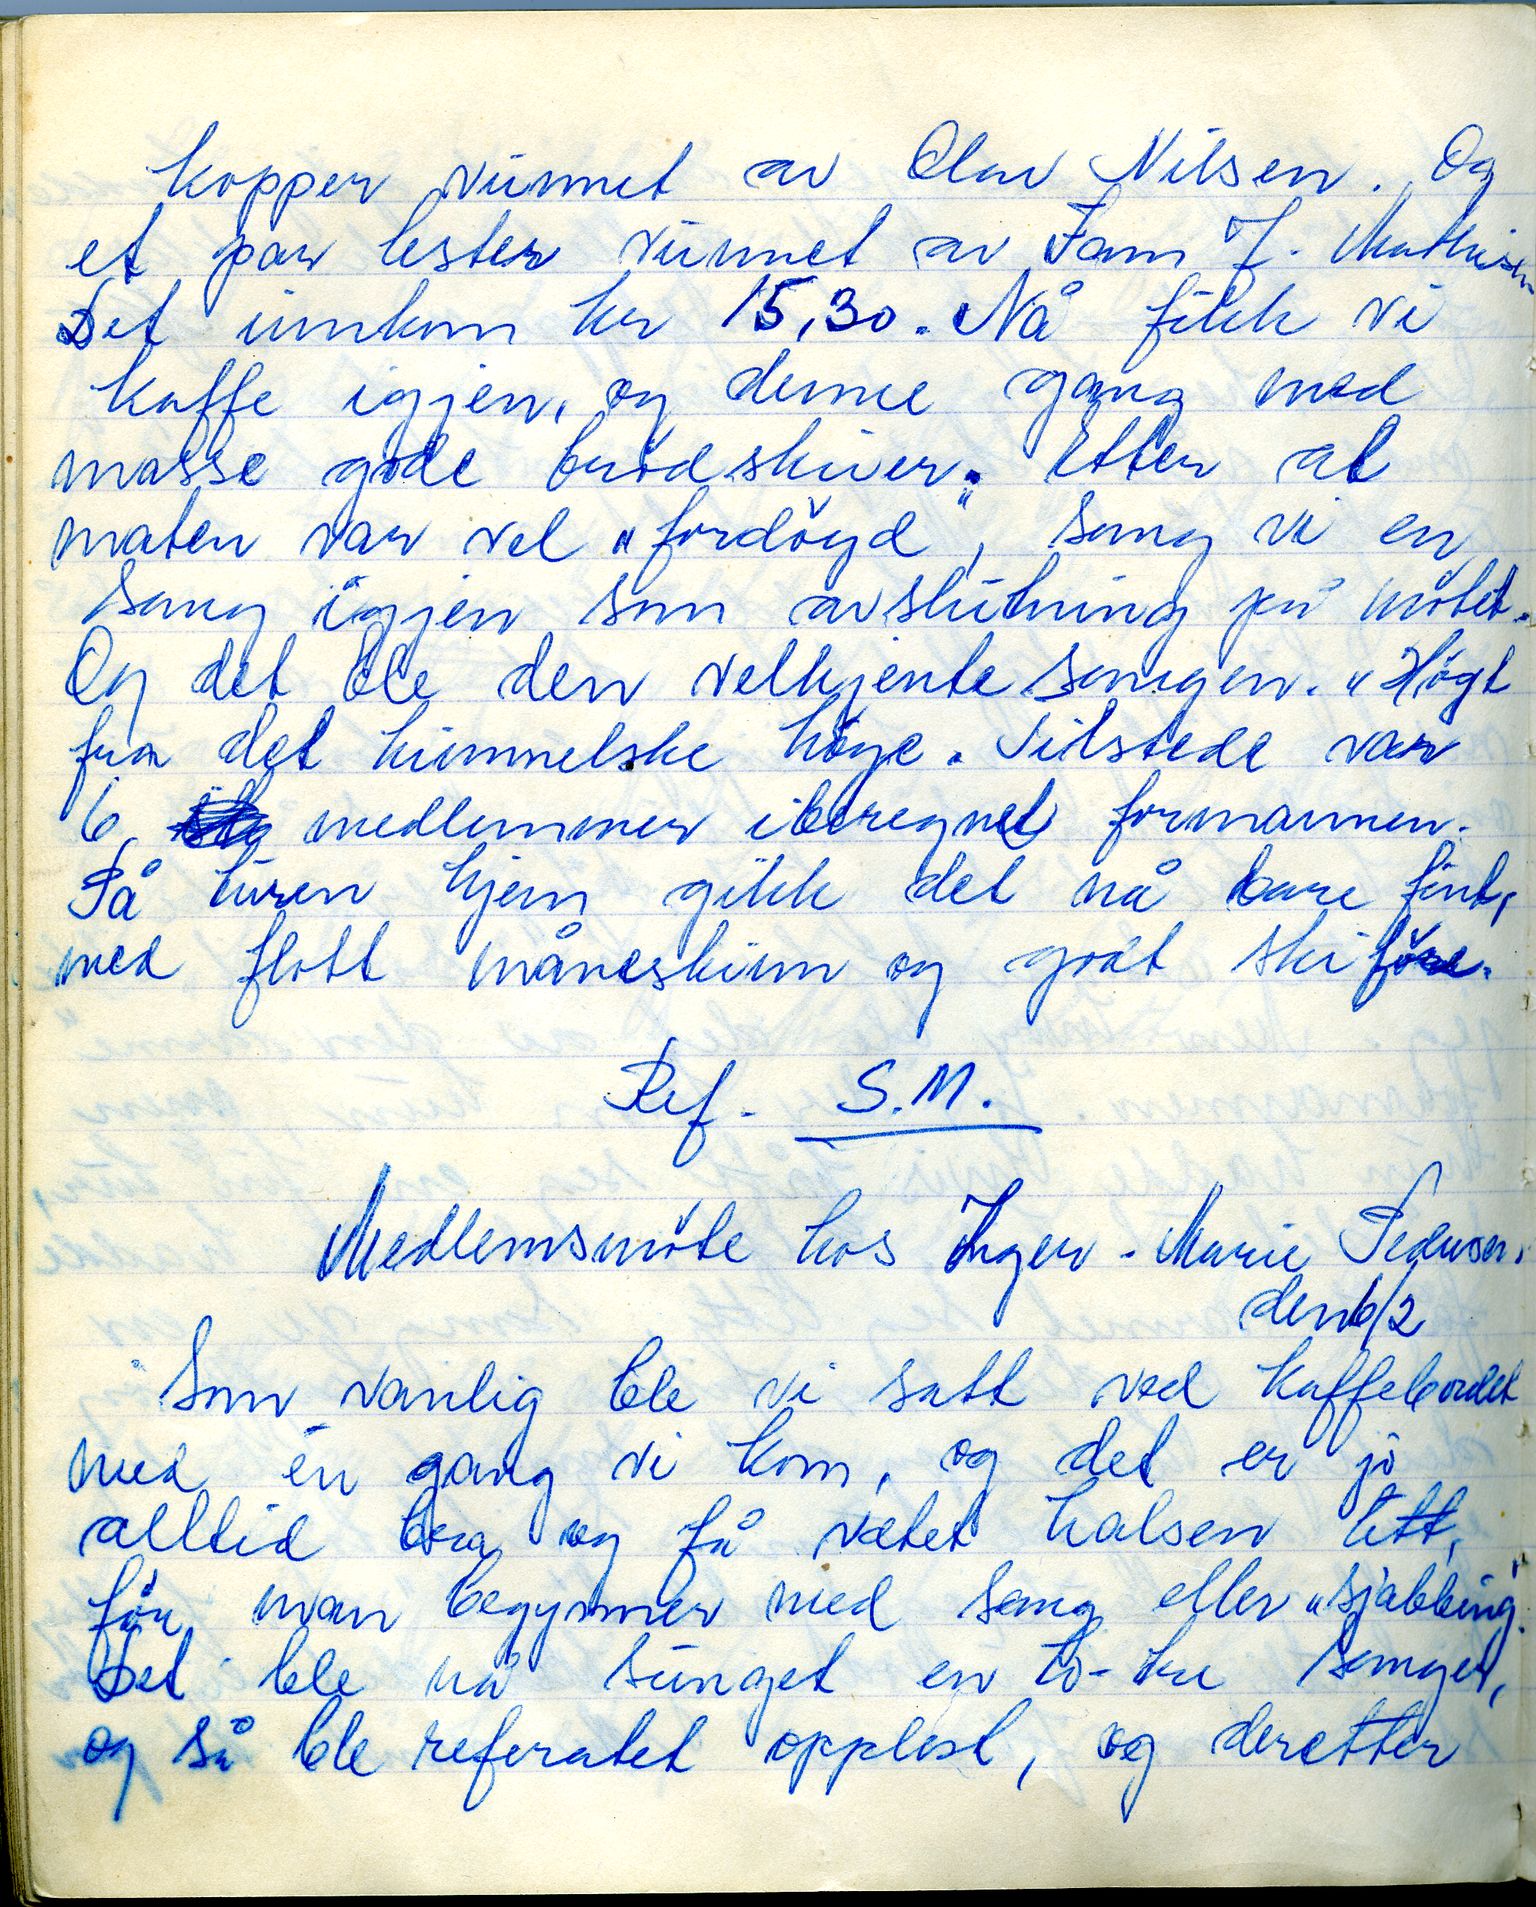 kopper vunnet av Olav Nilsen. Og
et par lester vunnet av Fam J. Mathisen
Det innkom kr 15,30. Nå fikk vi
kaffe igjen, og denne gang med
masse gode brödskiver. Etter at
maten var vel „fordöyd", sang vi en
sang igjen som avslutning på mötet.
Og det ble den velkjente sangen. „Högt
fra det himmelske höye. Tilstede var
6 medlemmer iberegnet formannen.
På turen hjem gikk det nå bare fint,
med flott måneskinn og godt skiföre.
Ref. S.M.
Medlemsmöte hos Inger-Marie Pedersen.
den 6/2
Som vanlig ble vi satt ved kaffebordet
med én gang vi kom, og det er jo
alltid bra og få vætet halsen litt,
för man begynner med sang eller „sjabbing".
Det ble nå sunget en to-tre sanger,
og så ble referatet opplest, og deretter